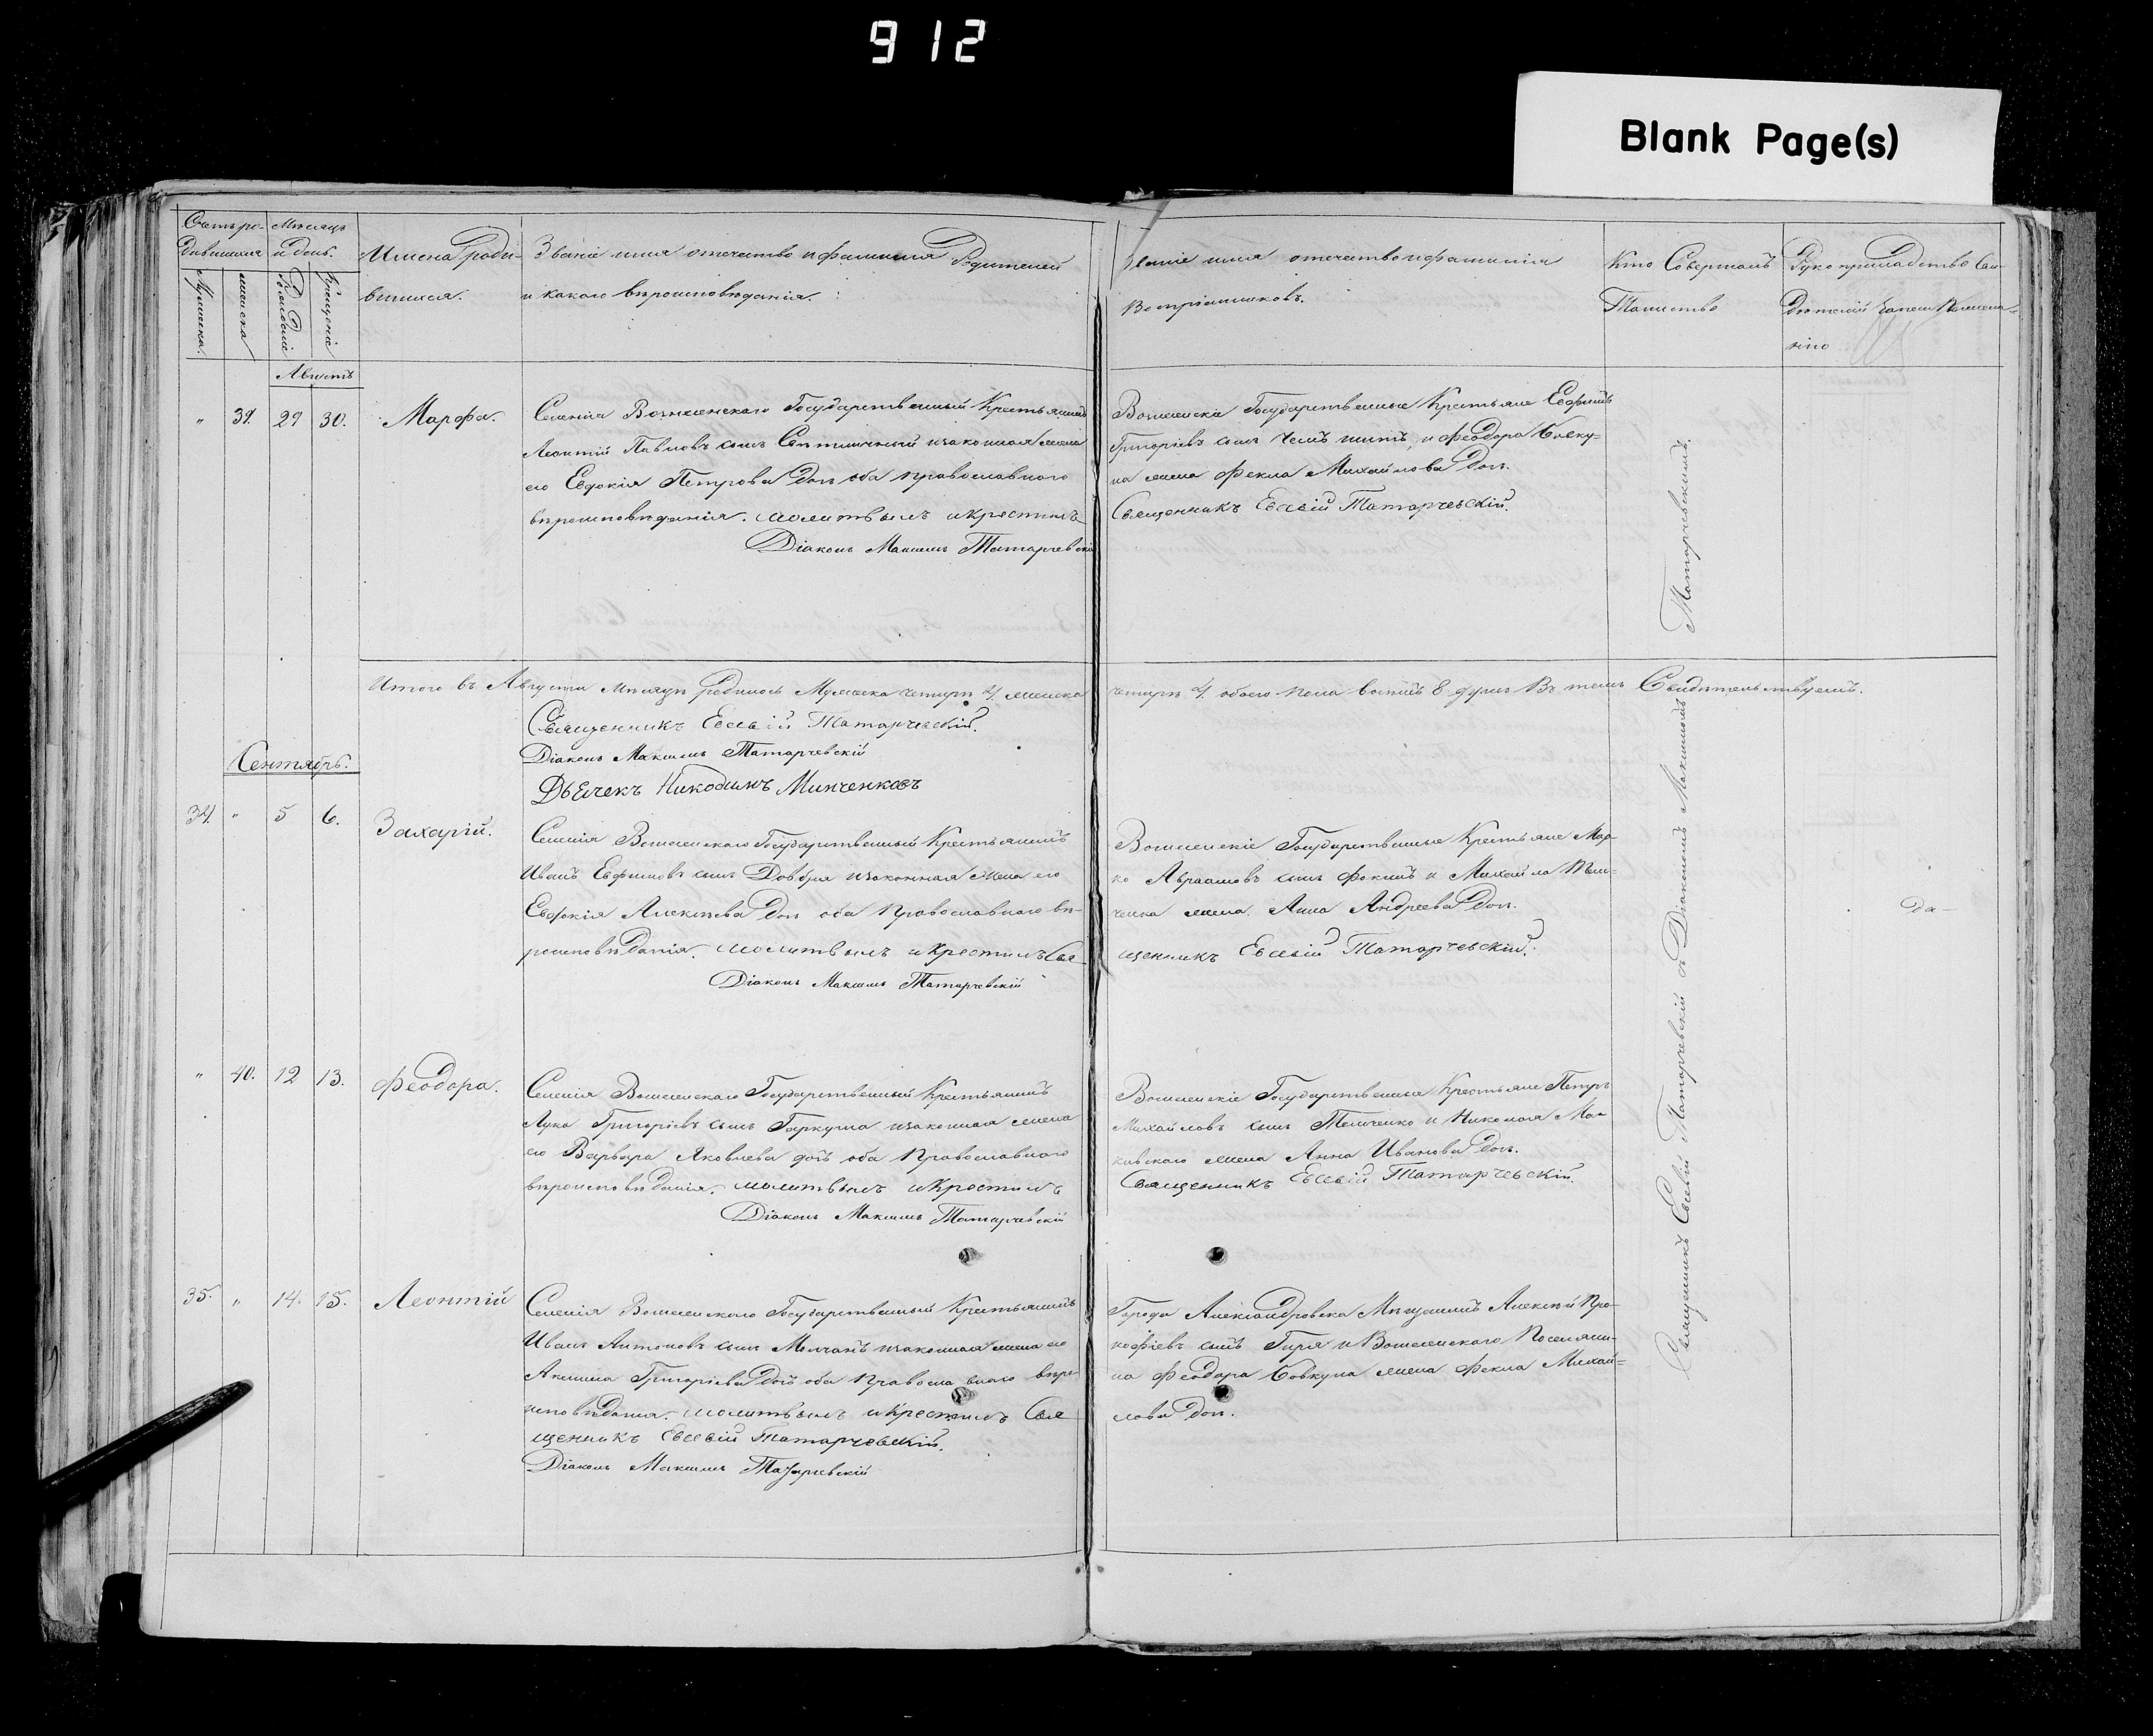 912
Blank Page(s)
Счетъ ро- Мѣсяцъ
дившихся и день.
Мужеска.
женска
Рожденіе
Крещеніе
Имена роди-
вшихся.
Званіе имя отечество и фамилия Родителей
и какого вѣроисповѣданія.
Званіе имя отечество и фамилія
Воспріемниковъ.
Кто Совершалъ
Таинство
Рукоприкладство Сви-
дѣтелей
Августъ
" 39. 29 30. Марфа.
Селенія Вознесенскаго Государственный Крестьянинъ
Леонтій Павловъ сынъ изаконная жена
его Евдокія Петрова Доч оба православнаго
вѣроисповѣданія. молитвилъ икрестилъ
Діаконъ Максимъ Татарчевскій
Вознесенскіе Государственные Крестьяне
Григоріевъ сынъ и Феодора Бовку-
на жена Фекла Михайлова Доч.
Священникъ Евсевій Татарчевскій.
Итого въ Августѣ Мѣсяцѣ родилось Мужеска четыри 4 женска
четыри 4 обоего пола 8 душъ Въ томъ Свидѣтельствуемъ.
Священникъ Евсевій Татарчевскій.
Діаконъ Максимъ Татарчевскій
Дьячекъ Никодимъ Минченковъ
Сентябрь.
34. " 5 6. Захарій.
Селенія Вознесенскаго Государственный Крестьянинъ
Иванъ Евфимовъ сынъ Довбня изаконная жена его
Евдокія Алексѣева Доч оба Православнаго вѣ-
роисповѣданія. молитвилъ икрестилъ Свя-
Діаконъ Максимъ Татарчевскій
Вознесенскіе Государственные Крестьяне Мар-
ко Авраамовъ сынъ и Михайла
жена Анна Андреева Доч.
щенникъ Евсевій Татарчевскій.
да-
" 40. 12 13. Феодора.
Селенія Вознесенскаго Государственный Крестьянинъ
Лука Григоріевъ сынъ Гаркуша изаконная жена
его Варвара Яковлева дочь оба Православнаго
вѣроисповѣданія. молитвилъ икрестилъ
Діаконъ Максимъ Татарчевскій
Вознесенскіе Государственные Крестьяне Петръ
Михайловъ сынъ и Николая Ма-
жена Анна Иванова Доч.
Священникъ Евсевій Татарчевскій.
35. " 14. 15. Леонтій
Селенія Вознесенскаго Государственный Крестьянинъ
Иванъ Антоновъ сынъ Молчанъ изаконная жена его
Акилина Григоріева Дочь оба Православнаго вѣро-
исповѣданія. молитвилъ икрестилъ Свя
щенникъ Евсевій Татарчевскій.
Діаконъ Максимъ Татарчевскій
Города Александровска Мѣщанинъ Алексѣй Про-
кофіевъ сынъ Гиря и Вознесенскаго Поселяни-
на Феодора Бовкуна жена Фекла Михай-
лова Доч.
Священникъ Евсевій Татарчевскій съ Діакономъ Максимомъ
Татарчевскимъ.